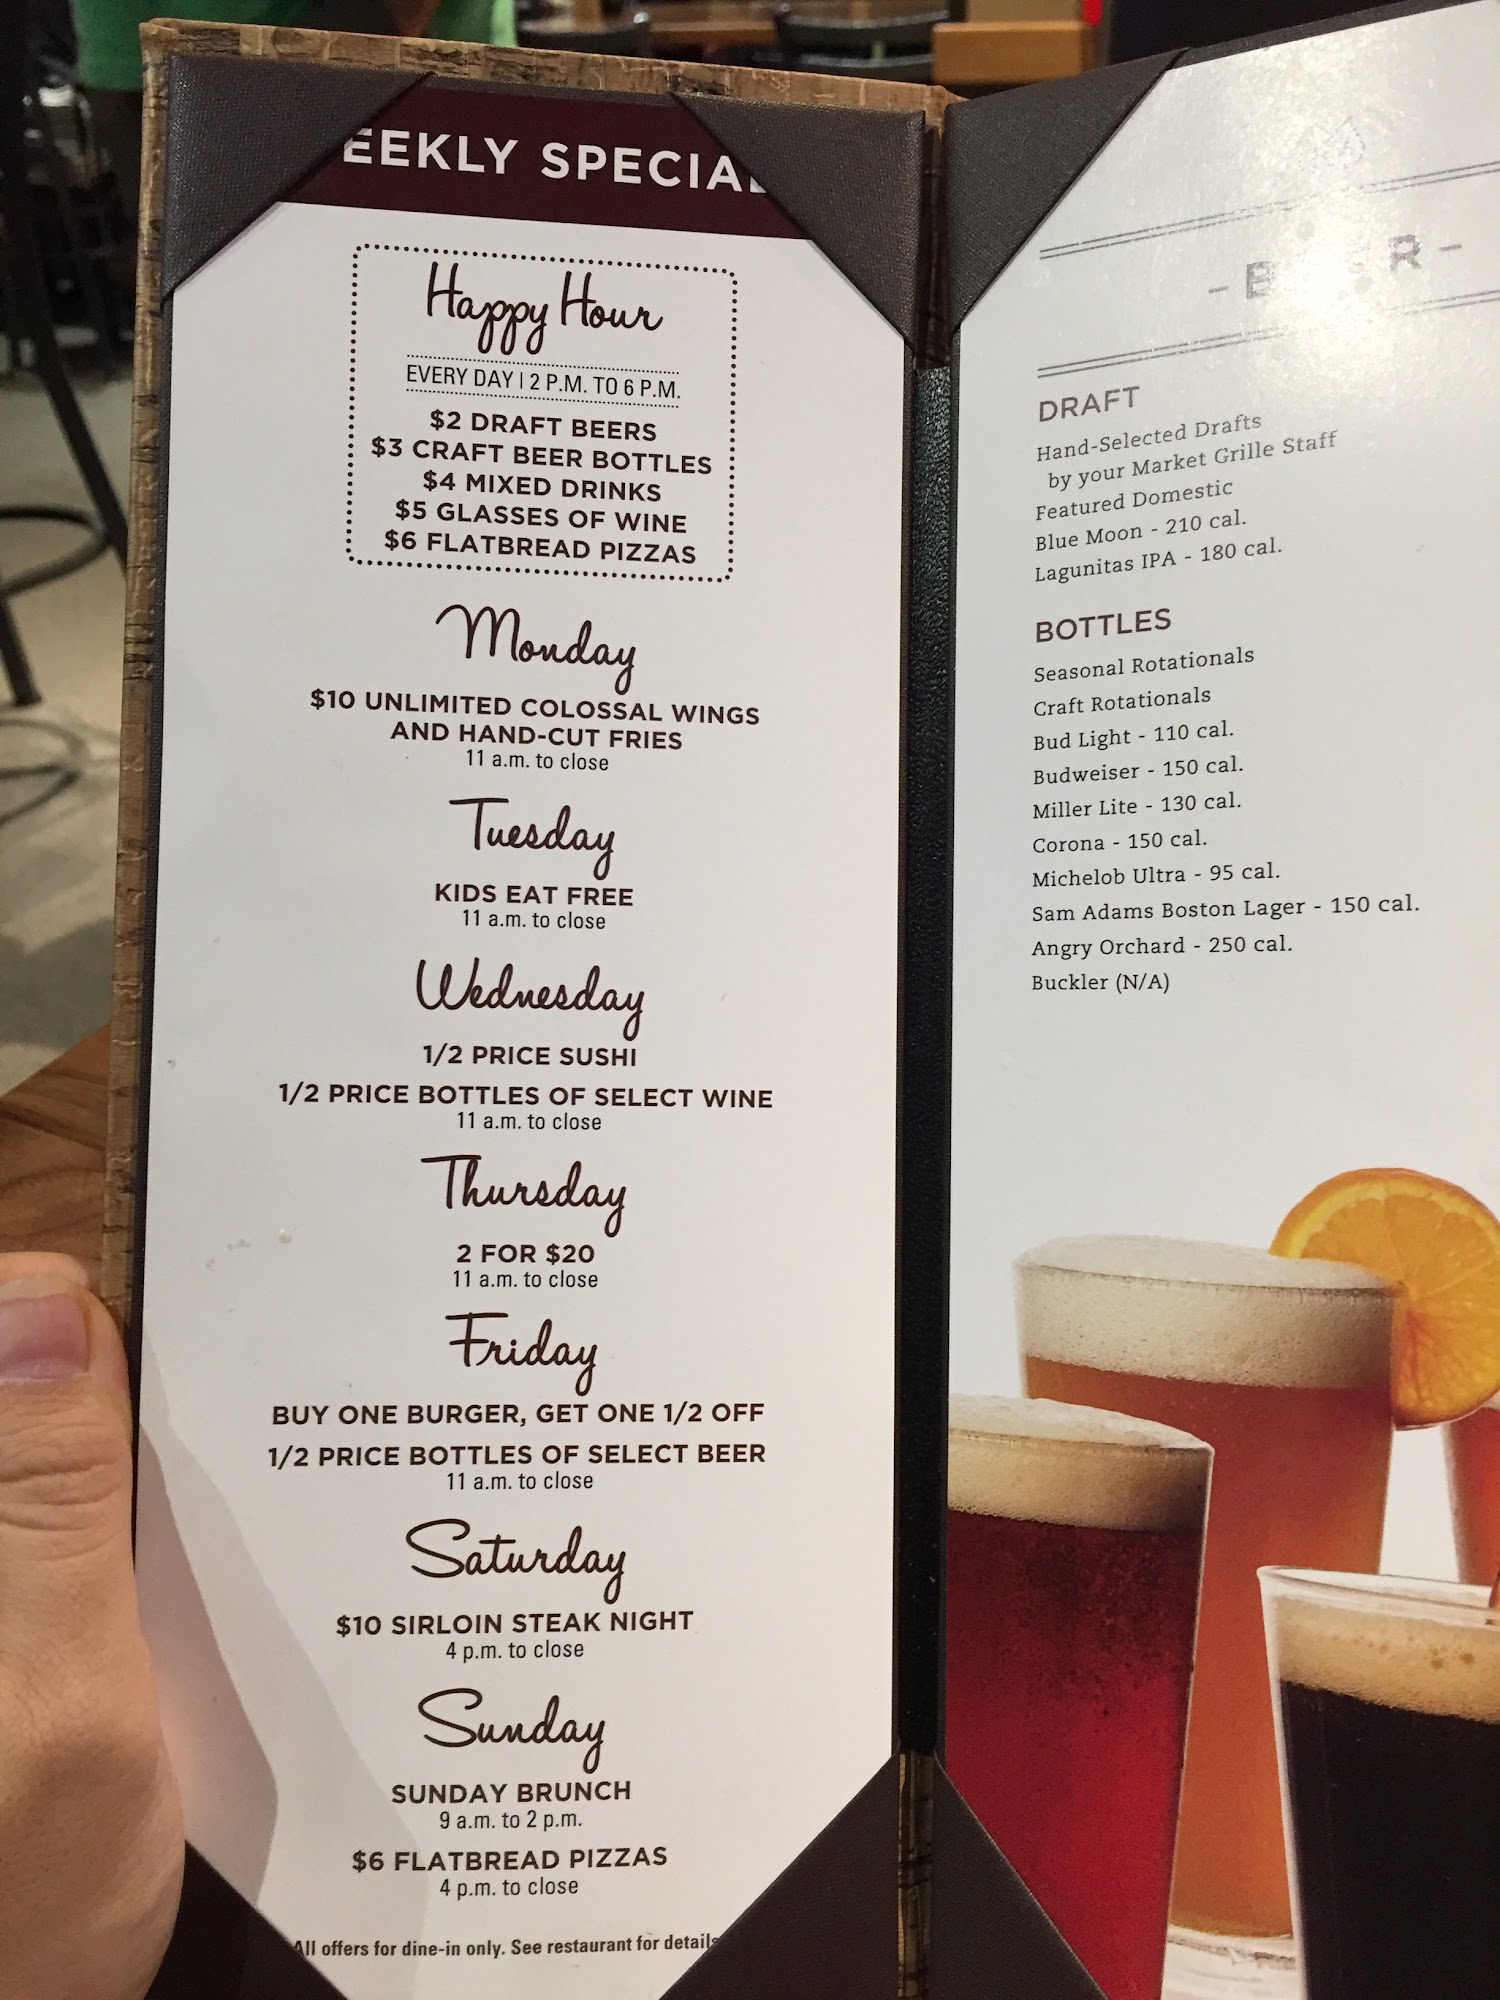 EEKLY SPECIAL
Happy Hour
EVERY DAY | 2 P.M. TO 6 P.M.
$2 DRAFT BEERS
$3 CRAFT BEER BOTTLES
$4 MIXED DRINKS
$5 GLASSES OF WINE
$6 FLATBREAD PIZZAS
Monday
$10 UNLIMITED COLOSSAL WINGS
AND HAND-CUT FRIES
11 a.m. to close
Tuesday
KIDS EAT FREE
11 a.m. to close
Wednesday
1/2 PRICE SUSHI
1/2 PRICE BOTTLES OF SELECT WINE
11 a.m. to close
Thursday
2 FOR $20
11 a.m. to close
Friday
BUY ONE BURGER, GET ONE 1/2 OFF
1/2 PRICE BOTTLES OF SELECT BEER
11 a.m. to close
Saturday
$10 SIRLOIN STEAK NIGHT
4 p.m. to close
Sunday
SUNDAY BRUNCH
9 a.m. to 2 p.m.
$6 FLATBREAD PIZZAS
4 p.m. to close
All offers for dine-in only. See restaurant for details
- BEER -
DRAFT
Hand-Selected Drafts
by your Market Grille Staff
Featured Domestic
Blue Moon - 210 cal.
Lagunitas IPA - 180 cal.
BOTTLES
Seasonal Rotationals
Craft Rotationals
Bud Light - 110 cal.
Budweiser - 150 cal.
Miller Lite - 130 cal.
Corona - 150 cal.
Michelob Ultra - 95 cal.
Sam Adams Boston Lager - 150 cal.
Angry Orchard - 250 cal.
Buckler (N/A)